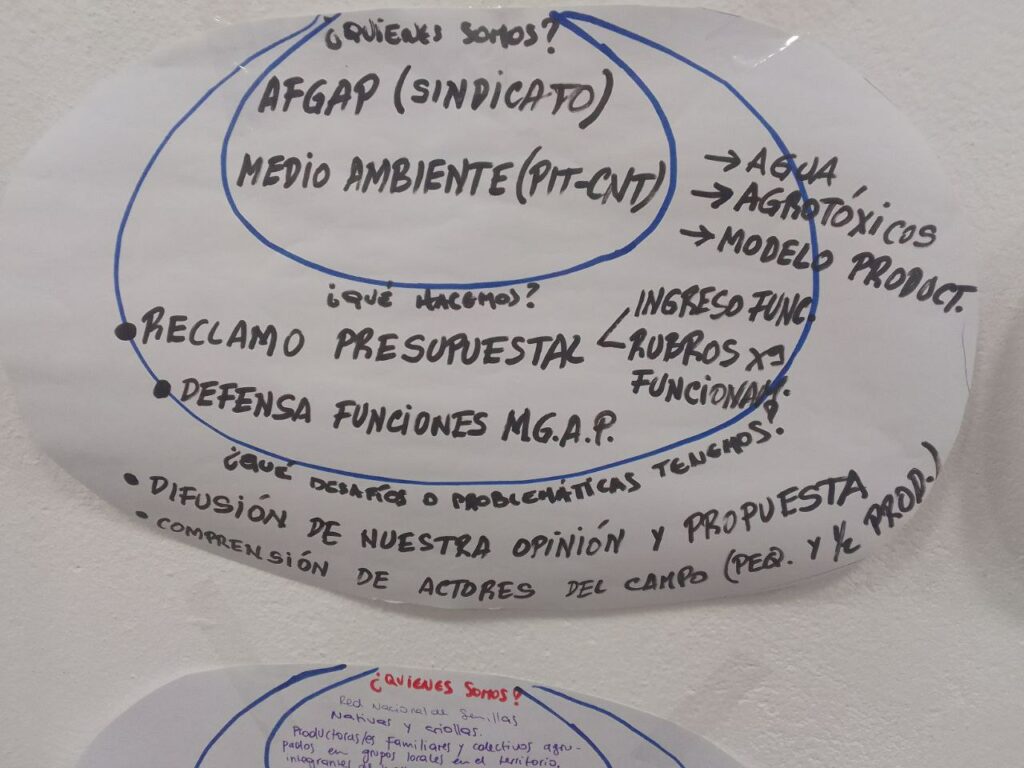 ¿QUIENES SOMOS?
AFGAP (SINDICATO)
MEDIO AMBIENTE (PIT-CNT)
→ AGUA
→ AGROTÓXICOS
→ MODELO PRODUCT.
¿QUÉ HACEMOS?
• RECLAMO PRESUPUESTAL
INGRESO FUNC.
RUBROS Xª
FUNCIONAM.
• DEFENSA FUNCIONES M.G.A.P.
¿QUÉ DESAFÍOS O PROBLEMÁTICAS TENEMOS?
• DIFUSIÓN DE NUESTRA OPINIÓN Y PROPUESTA
• COMPRENSIÓN DE ACTORES DEL CAMPO (PEQ. Y ½ PROD.)
¿QUIENES SOMOS?
Red Nacional de Semillas
Nativas y criollas.
Productoras/es familiares y colectivos agru-
pados en grupos locales en el territorio,
integrantes de